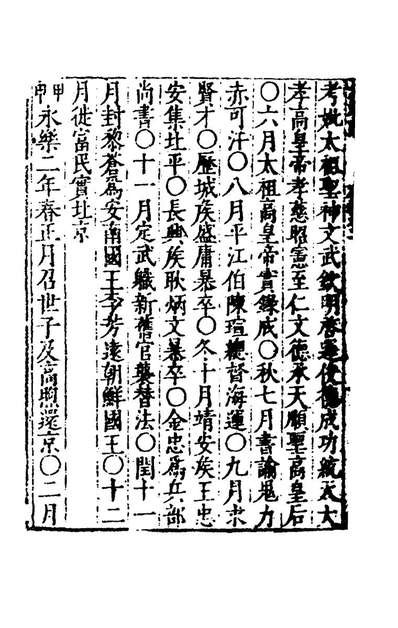 考妣太祖聖神文武欽明啓運俊德成功統天大
孝高皇帝孝慈昭憲至仁文德承天順聖高皇后
〇六月太祖高皇帝實錄成〇秋七月書諭鬼力
赤可汗〇八月平江伯陳瑄總督海運〇九月求
賢才〇歷城侯盛庸暴卒〇冬十月靖安侯王忠
安集北平〇長興侯耿炳文暴卒〇金忠爲兵部
尚書〇十一月定武職新舊官襲替法〇閏十一
月封黎蒼爲安南國王李芳遠朝鮮國王〇十二
月徙富民實北京
甲申永樂二年春正月召世子及高煦還京〇二月